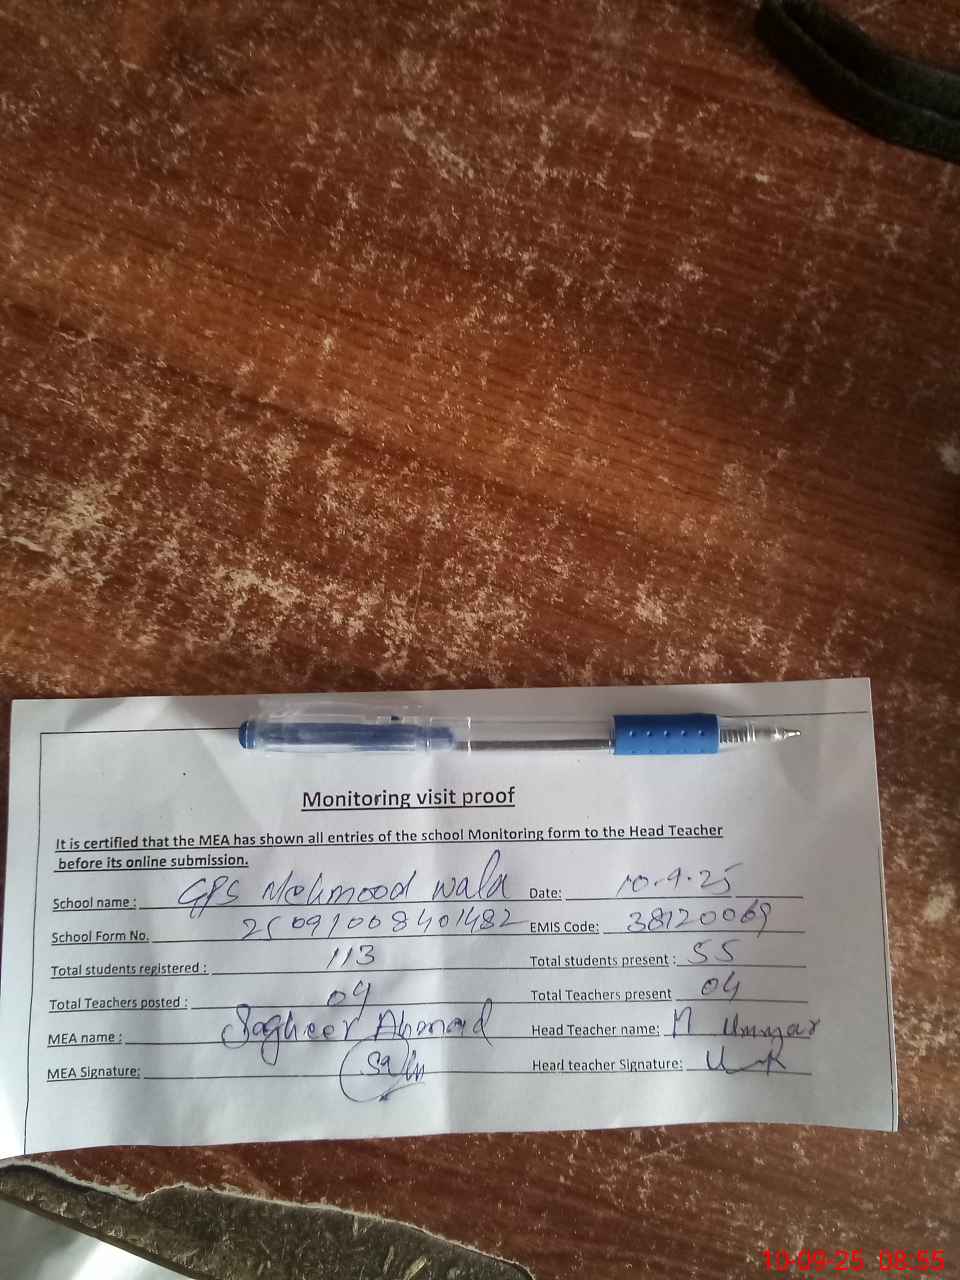 Monitoring visit proof
It is certified that the MEA has shown all entries of the school Monitoring form to the Head Teacher
before its online submission.
School name : GPS Mehmood wala Date: 10-9-25
School Form No. 25091008401482 EMIS Code: 38120069
Total students registered : 113 Total students present : 55
Total Teachers posted : 04 Total Teachers present 04
MEA name : Sagheer Ahmad Head Teacher name: M Ummar
MEA Signature: Head teacher Signature:
10-09-25 08:55